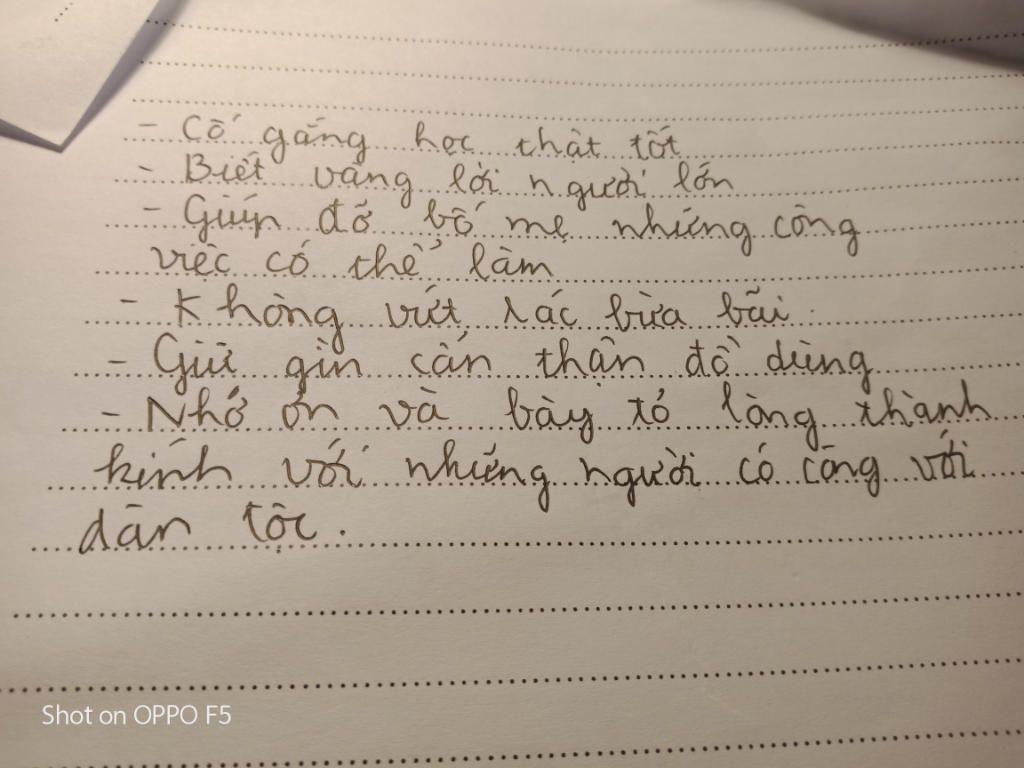 - Cố gắng học thật tốt
- Biết vâng lời người lớn
- Giúp đỡ bố mẹ những công
việc có thể làm
- Không vứt rác bừa bãi.
- Giữ gìn cẩn thận đồ dùng
- Nhớ ơn và bày tỏ lòng thành
kính với những người có công với
dân tộc.
Shot on OPPO F5